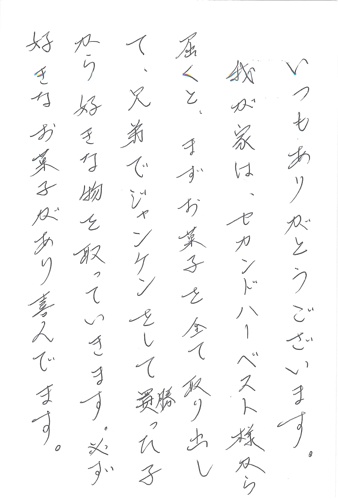 いつもありがとうございます。
我が家は、セカンドハーベスト様から
届くと、まずお菓子を全て取り出し
て、兄弟でジャンケンをして勝った子
から好きな物を取っていきます。必ず
好きなお菓子があり喜んでます。